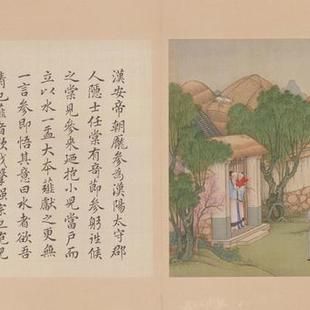 漢安帝朝龐參為漢陽太守郡
人隱士任棠有奇節參躬詣候
之棠見參來迺抱小兒當戶而
立以水一盂大本薤獻之更無
一言參即悟其意曰水者欲吾
清也薤者欲我擊强宗也